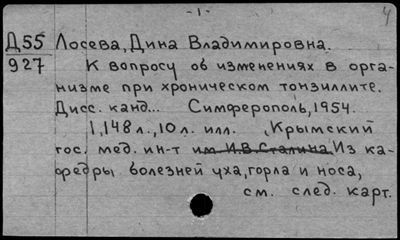 -1-
4
Д55 Лосева, Дина Владимировна.
927 К вопросу об изменениях в орга-
низме при хроническом тонзиллите.
Дисс. канд... Симферополь, 1954.
1,148 л., 10 л. илл. Крымский
гос. мед. ин-т им. И.В. Сталина. Из ка-
федры болезней уха, горла и носа,
см. след. карт.